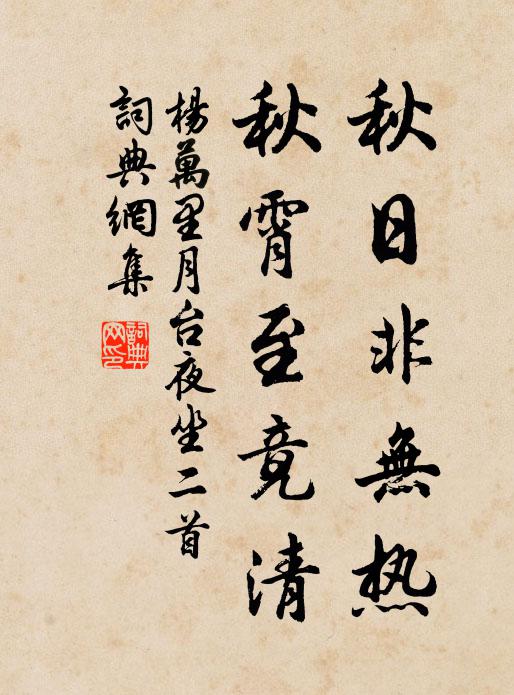 秋日非無热
秋霄至竟清
楊萬里月台夜坐二首
詞典網集
詞典
网印